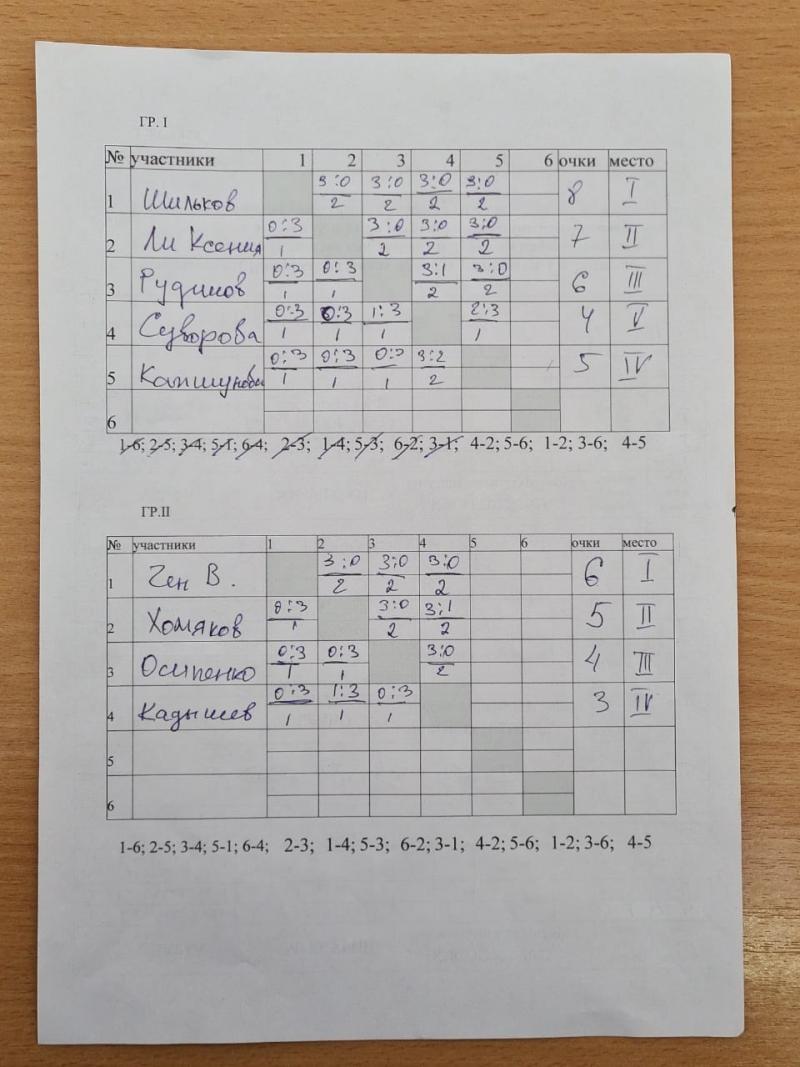 ГР. I
№ участники 1 2 3 4 5 6 очки место
1 Шильков 3:0 3:0 3:0 3:0 8 I
2 2 2 2
2 Ли Ксения 0:3 3:0 3:0 3:0 7 II
1 2 2 2
3 Рудинов 0:3 0:3 3:1 3:0 6 III
1 1 2 2
4 Суворова 0:3 0:3 1:3 2:3 4 V
1 1 1 1
5 0:3 0:3 0:3 3:2 5 IV
1 1 1 2
6
1-6; 2-5; 3-4; 5-1; 6-4; 2-3; 1-4; 5-3; 6-2; 3-1; 4-2; 5-6; 1-2; 3-6; 4-5
ГР.II
№ участники 1 2 3 4 5 6 очки место
1 Чен В. 3:0 3:0 3:0 6 I
2 2 2
2 Хомяков 0:3 3:0 3:1 5 II
1 2 2
3 Осипенко 0:3 0:3 3:0 4 III
1 1 2
4 Кадышев 0:3 1:3 0:3 3 IV
1 1 1
5
6
1-6; 2-5; 3-4; 5-1; 6-4; 2-3; 1-4; 5-3; 6-2; 3-1; 4-2; 5-6; 1-2; 3-6; 4-5